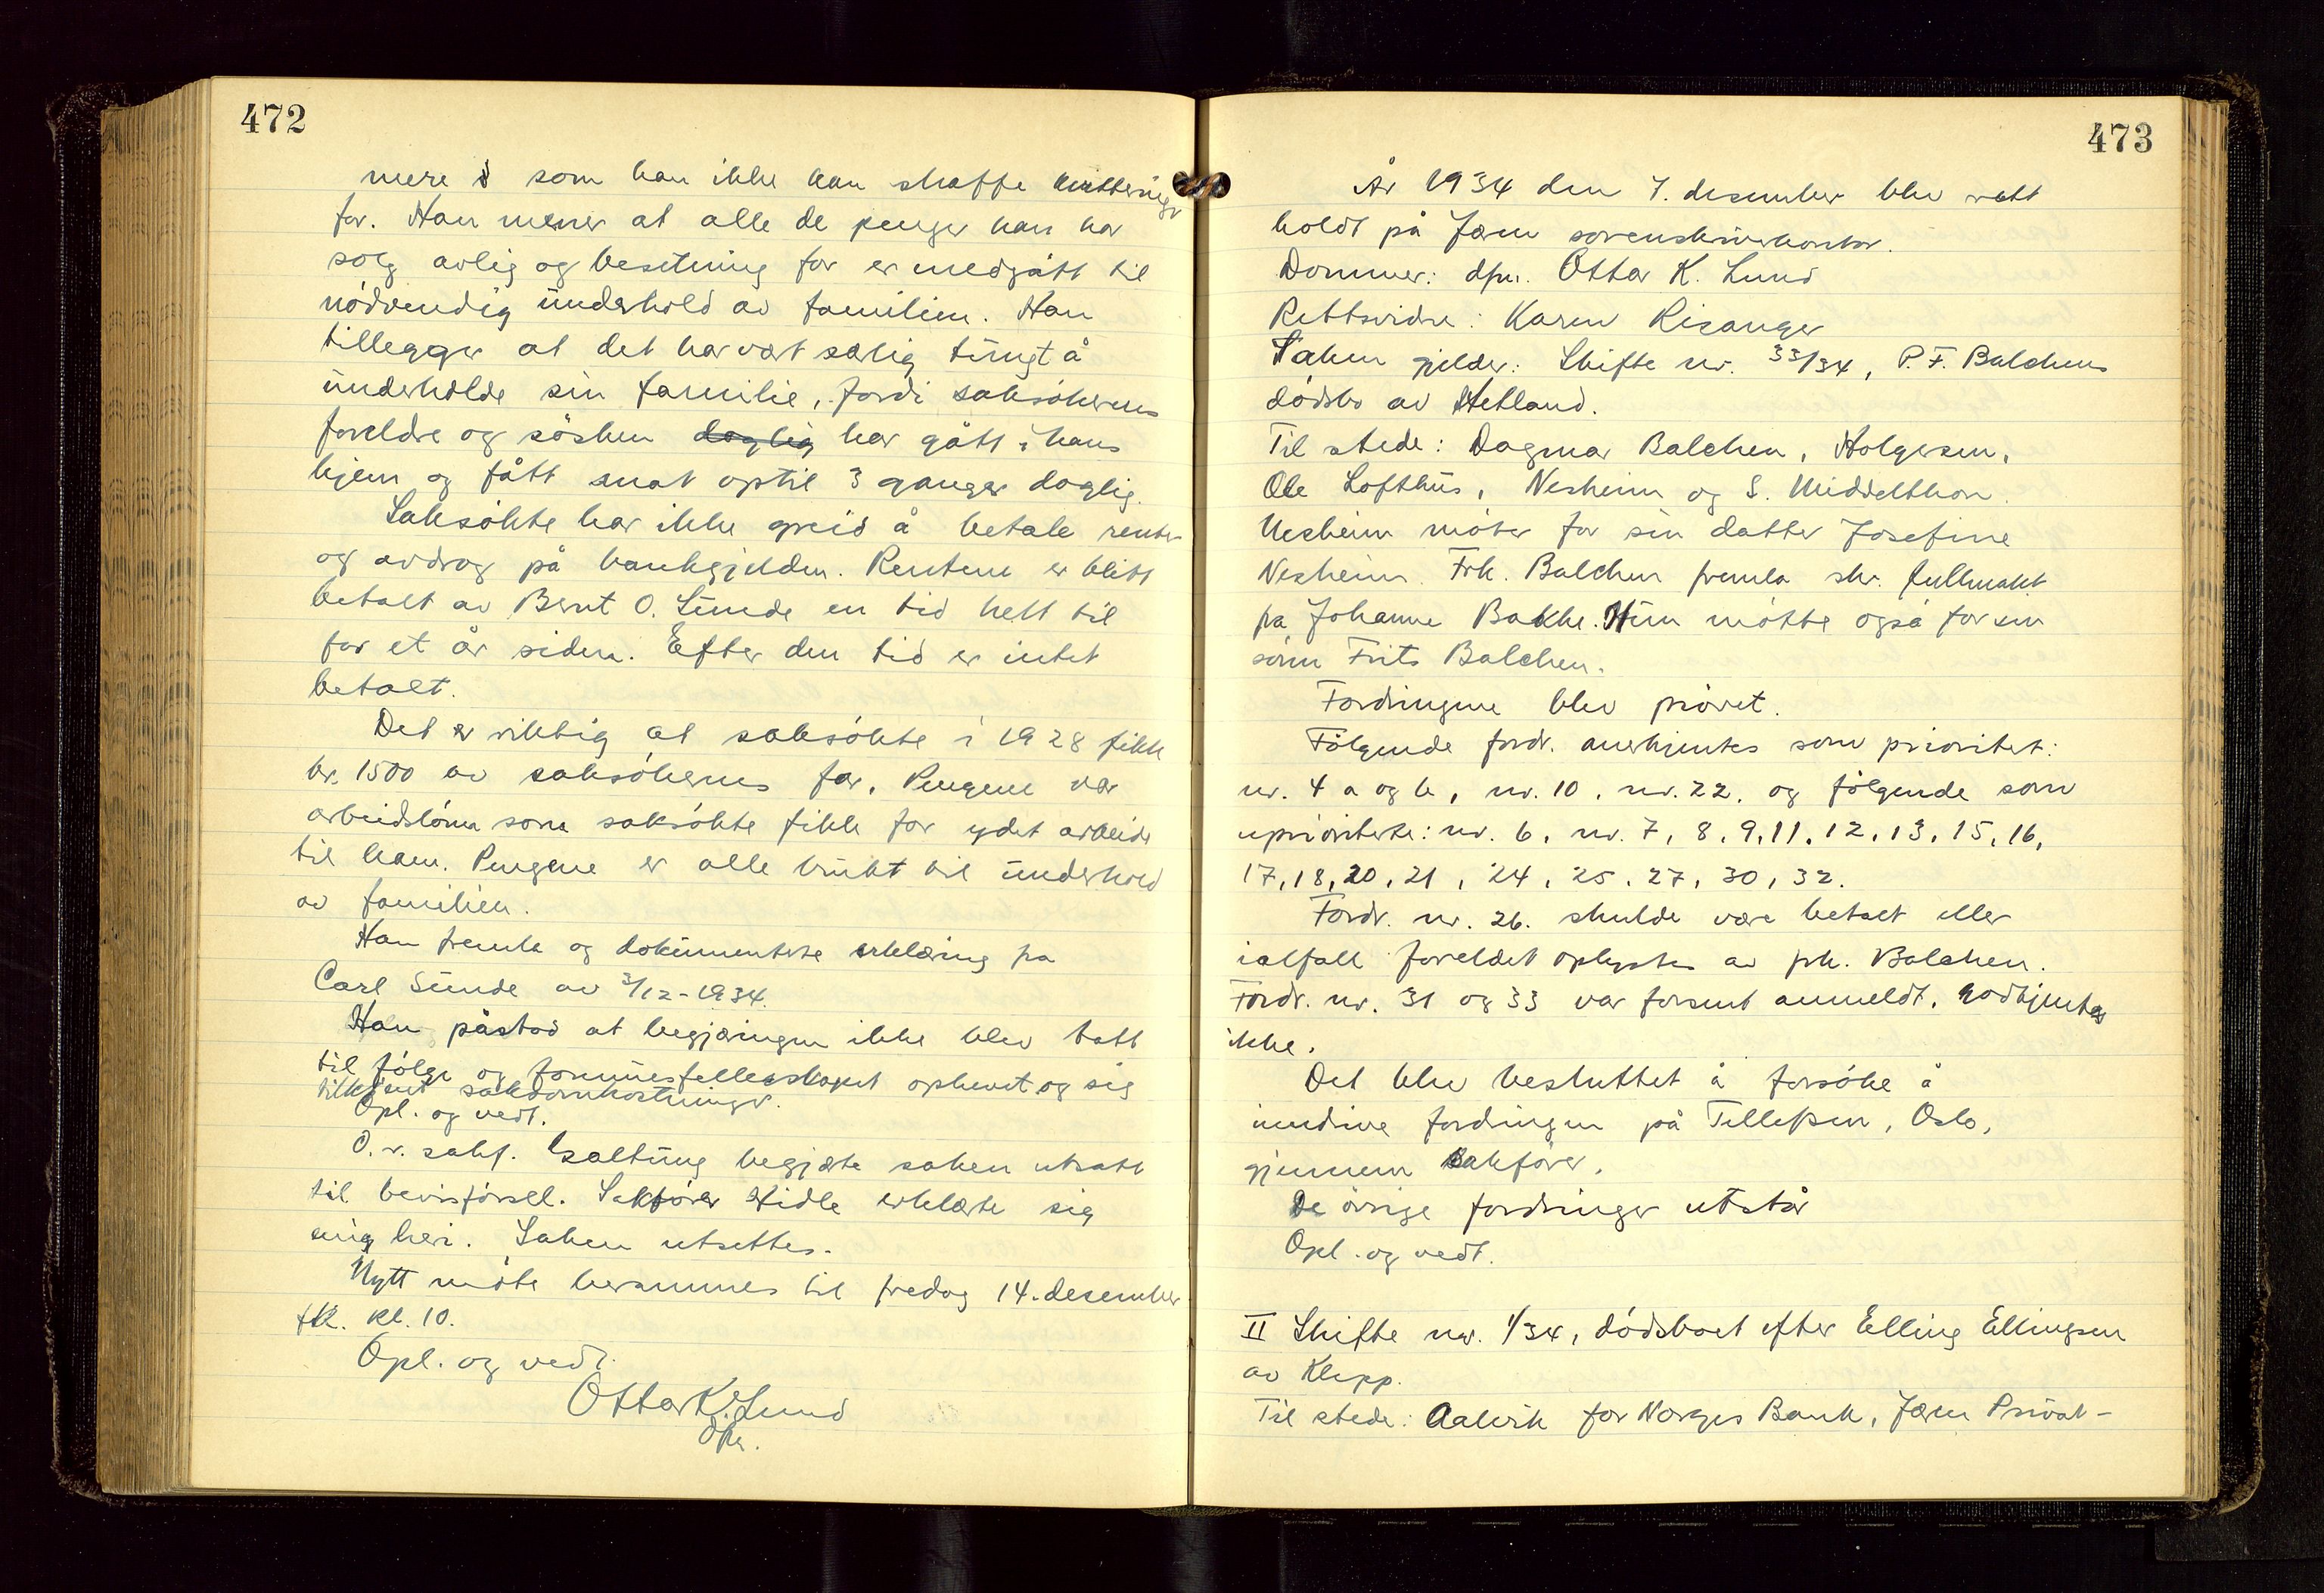 472
mere som han ikke kan skaffe kvitteringer
for. Han mener at alle de penger han har
solg avlig og besetning for er medgått til
nödvendig underhold av familien. Han
tillegger at det har vært særlig tungt å
underholde sin familie, fordi saksökerens
foreldre og sösken daglig har gått i hans
hjem og fått mat optil 3 ganger daglig.
Saksökte har ikke greid å betale renter
og avdrag på bankgjelden. Rentene er blitt
betalt av Bernt O. Sunde en tid helt til
for et år siden. Efter den tid er intet
betalt.
Det er riktig at saksökte i 1928 fikk
kr. 1500 av saksökerens far. Pengene var
arbeidslönn som saksökte fikk for ydet arbeide
til ham. Pengene er alle brukt til underhold
av familien.
Han fremla og dokumenterte erklæring fra
Carl Sunde av 3/12-1934.
Han påstod at begjæringen ikke blev tatt
til fölge og formuesfellesskapet ophevet og sig
tilkjent saksomkostninger.
Opl. og vedt.
O.r. sakf. Isaltung begjærte saken utsatt
til bevisförsel. Sakförer Eidle erklærte sig
enig heri. Saken utsettes.
Nytt möte berammes til fredag 14. desember
fk. kl. 10.
Opl. og vedt.
Ottar K. Lund
dfm.
473
År 1934 den 7. desember blev rett
holdt på Jæren sorenskriverkontor.
Dommer: dfm. Ottar K. Lund
Rettsvidne: Karen Risanger
Saken gjelder: Skifte nr. 33/34, P. F. Balchens
dödsbo av Hetland.
Til stede: Dagmar Balchen, Holgersen,
Ole Lofthus, Nesheim og S. Middelthon.
Nesheim möter for sin datter Josefine
Nesheim. Frk. Balchen fremla skr. fullmakt
fra Johanne Bakke. Hun mötte også for sin
sönn Frits Balchen.
Fordringene blev prövet.
Fölgende fordr. anerkjentes som prioritet:
nr. 4 a og b, nr. 10, nr. 22. og fölgende som
uprioriterte: nr. 6, nr. 7, 8, 9, 11, 12, 13, 15, 16,
17, 18, 20, 21, 24, 25, 27, 30, 32.
Fordr. nr. 26. skulde være betalt eller
ialfall foreldet oplystes av frk. Balchen.
Fordr. nr. 31 og 33 var forsent anmeldt. Godkjentes
ikke.
Det blev besluttet å forsöke å
inndrive fordringen på Tellefsen, Oslo,
gjennem sakförer.
De övrige fordringer utstår
Opl. og vedt.
II Skifte nr. 1/34, dödsboet efter Elling Ellingsen
av Klepp.
Til stede: Aalvik for Norges Bank, Jæren Privat-